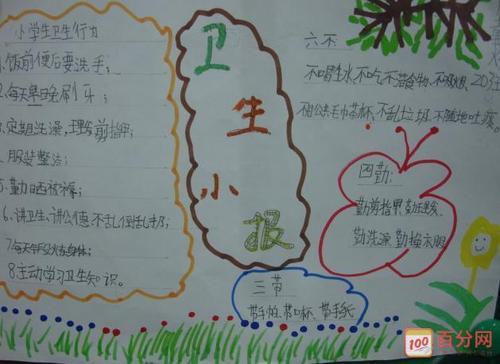 小学生卫生行为
1.饭前便后要洗手;
2.每天早晚刷牙;
3.定期洗澡,理发剪指甲;
4.服装整洁;
5.勤晒被褥;
6.讲卫生、讲公德、不乱倒乱扔;
8.主动学习卫生知识。
卫生小报
六不
不喝生水,不吃不洁食物、不吸烟、
不用公共毛巾茶杯、不乱扔垃圾、不随地吐痰
四勤:
勤剪指甲
勤洗澡 勤换衣服
三带
带手帕、带口杯、带手纸
100 百分网